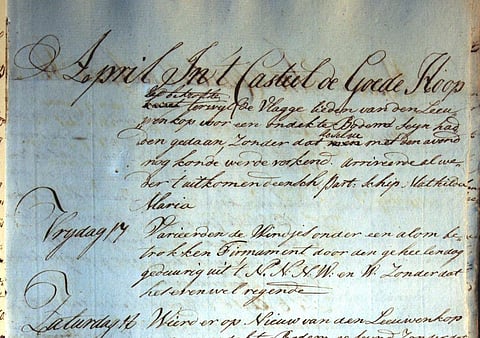 April In't Casteel de Goede Hoop
terwyl de Vlagge heden van den Leeu-
wenkop voor een ondekte Bodem Seyn had
een gedaan Zonder dat men met den avond
nog konde werde verkend. arriveerde al we-
der t uitkomend eensch part: schip Mathilda
Maria
Vrydag 17 Varieerden de Wind onder een alom be-
trokken Firmament door den geheelen dag
gedeurig uit t N. N.N.W. en W. Zonder dat
het evenwel regende
Zaturdag 18 Wierd er op Nieuw van den Leeuwenkop